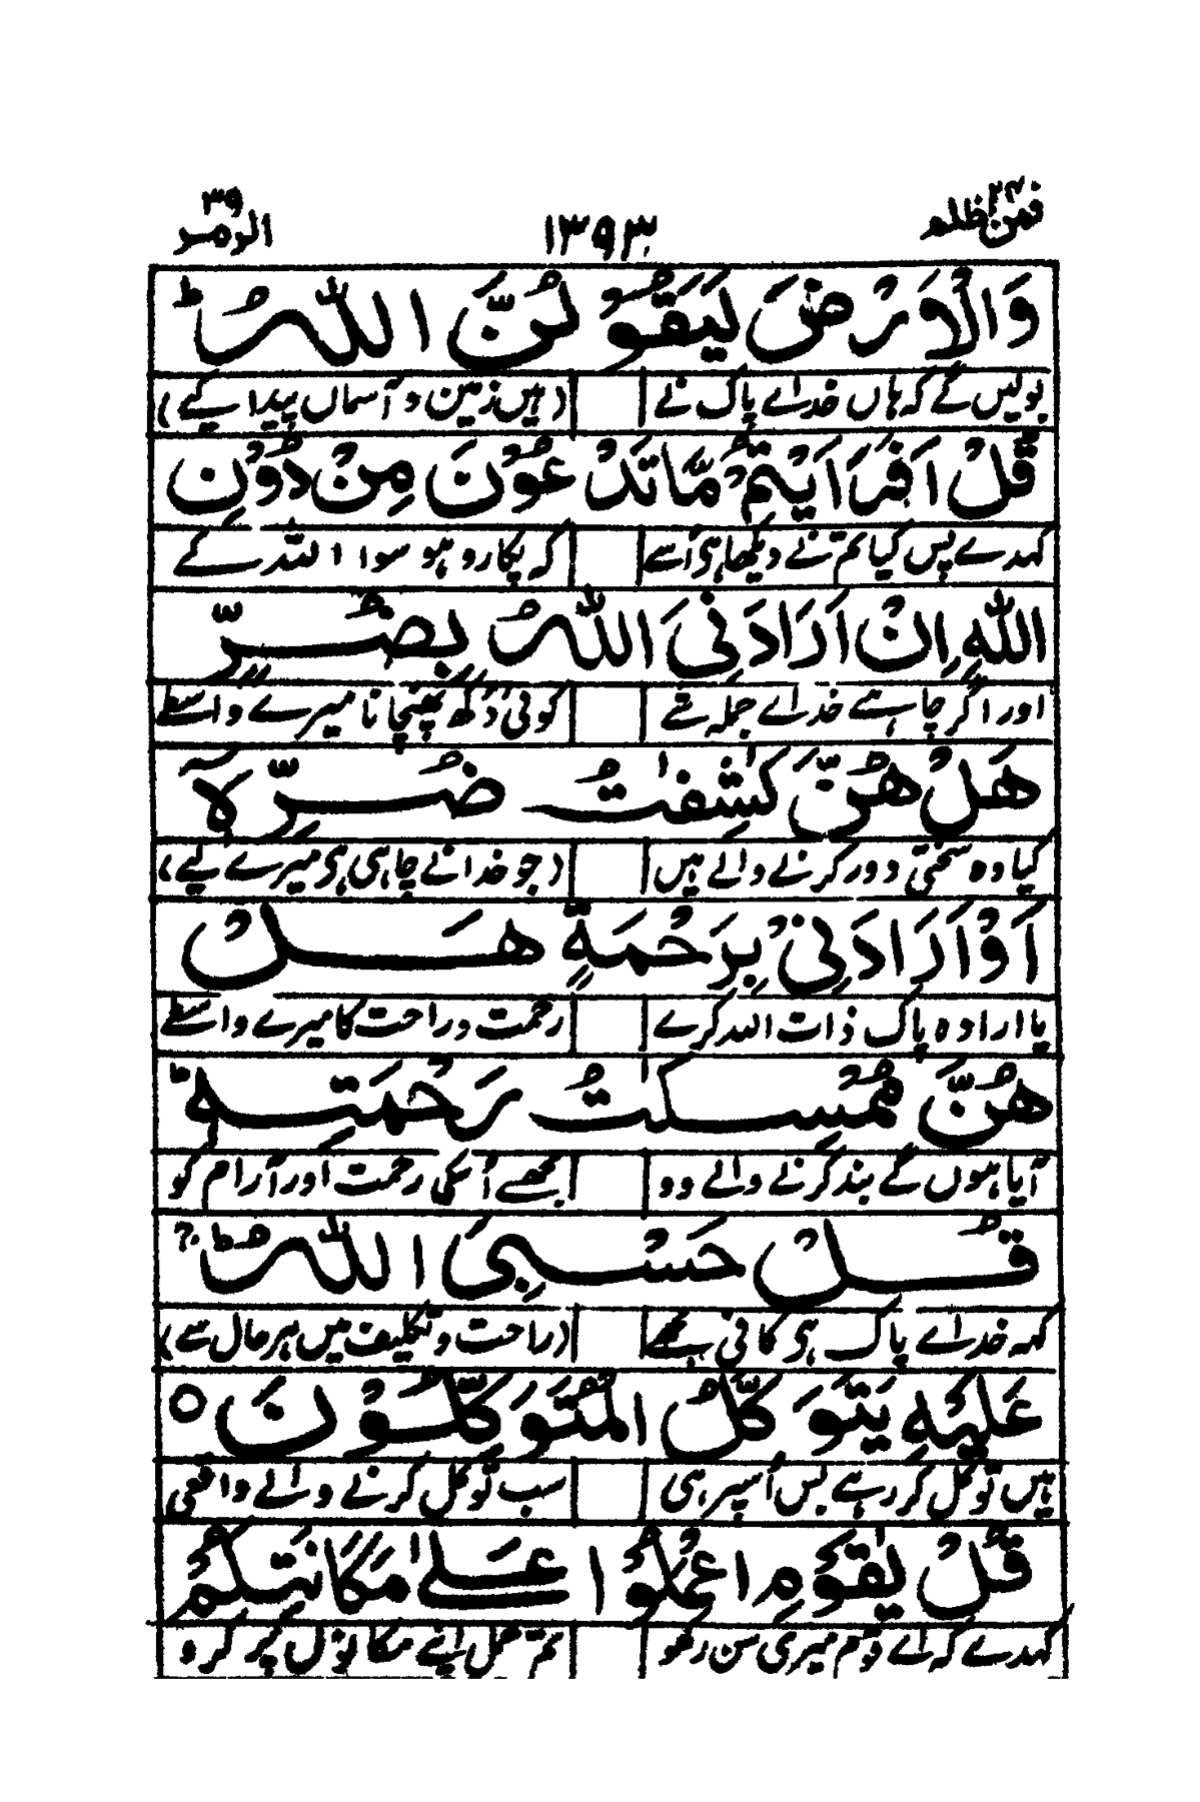 فمن ظلم ۲۴ ۱۳۹۳ الزمر ۳۹
وَالْاَرْضَ لَيَقُوْلُنَّ اللّٰهُ ؕ
بولیں گے کہ ہاں خدائے پاک نے (ہیں زمین و آسماں پیدا کیے)
قُلْ اَفَرَاَيْتُمْ مَّا تَدْعُوْنَ مِنْ دُوْنِ
کہدے پس کیا تم نے دیکھا ہی اُسے کہ پکارو ہو سوا اللہ کے
اللّٰهِ اِنْ اَرَادَنِیَ اللّٰهُ بِضُرٍّ
اور اگر چاہے خدائے جملہ شے کوئی دُکھ پہنچانا میرے واسطے
هَلْ هُنَّ كٰشِفٰتُ ضُرِّهٖۤ
کیا وہ سختی دور کرنے والے ہیں (جو خدا نے چاہی ہی میرے لیے)
اَوْ اَرَادَنِیْ بِرَحْمَةٍ هَلْ
یا ارادہ پاک ذات اللہ کرے رحمت و راحت کا میرے واسطے
هُنَّ مُمْسِكٰتُ رَحْمَتِهٖ ؕ
آیا ہوں گے بند کرنے والے وو مجھسے اُسکی رحمت اور آرام کو
قُلْ حَسْبِیَ اللّٰهُ ؕ
کہہ خدائے پاک ہی کافی ہے مجھے (راحت و تکلیف میں ہر حال سے)
عَلَيْهِ يَتَوَكَّلُ الْمُتَوَكِّلُوْنَ ○
ہیں توکل کر رہے بس اُسپر ہی سب توکل کرنے والے واقعی
قُلْ يٰقَوْمِ اعْمَلُوْا عَلٰى مَكَانَتِكُمْ
کہدے کہ اے قوم میری سن رکھو تم عمل اپنے مکانوں پر کرو